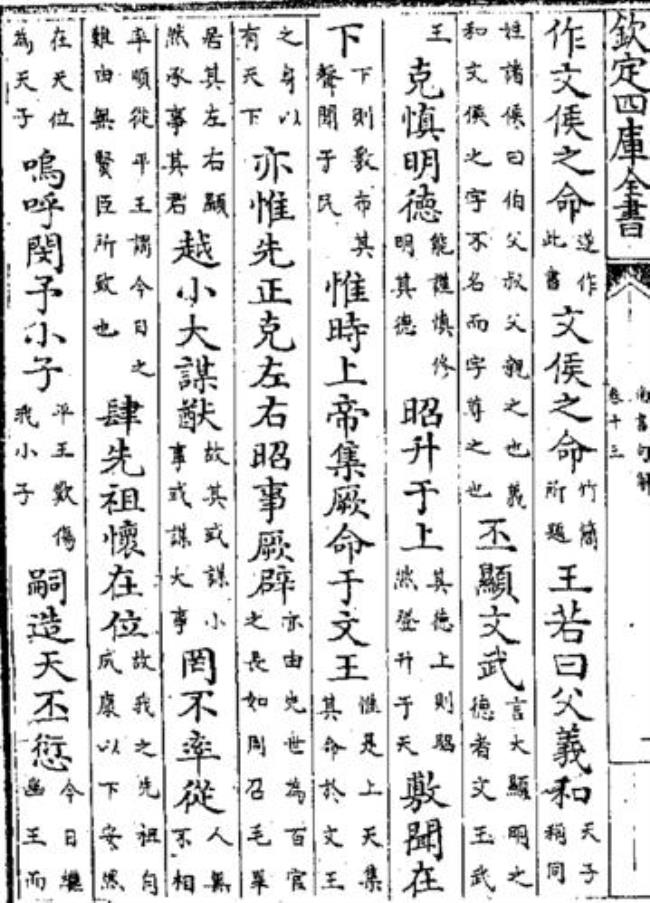 欽定四庫全書
尚書句解
卷十三
作文侯之命遂作此書文侯之命竹簡所題王若曰父義和天子稱同
姓諸侯曰伯父叔父親之也義和文侯之字不名而字尊之也丕顯文武言大顯明之德者文王武
王克慎明德能謹慎修明其德昭升于上其德上則昭然登升于天敷聞在
下下則敷布其聲聞于民惟時上帝集厥命于文王惟是上天集其命於文王
之身以有天下亦惟先正克左右昭事厥辟亦由先世為百官之長如周召毛畢
居其左右顯然承事其君越小大謀猷故其或謀小事或謀大事罔不率從人無不相
率順從平王謂今日之難由無賢臣所致也肆先祖懷在位故我之先祖自成康以下安然
在天位為天子嗚呼閔予小子平王歎傷我小子嗣造天丕愆今日繼幽王而